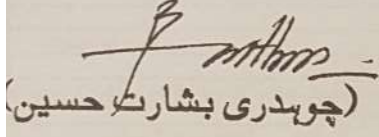 (چوہدری بشارت حسین)